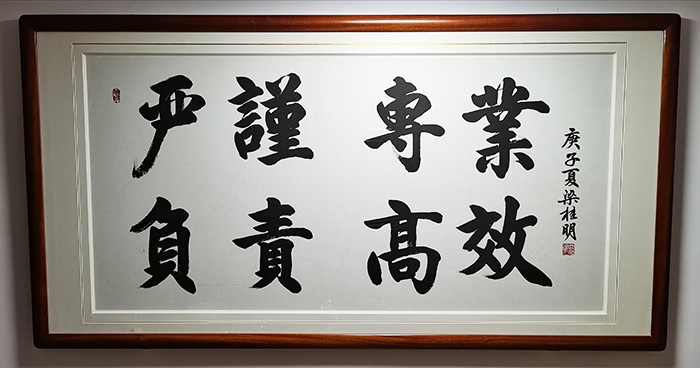 严謹專業
負責高效
庚子夏梁桂明